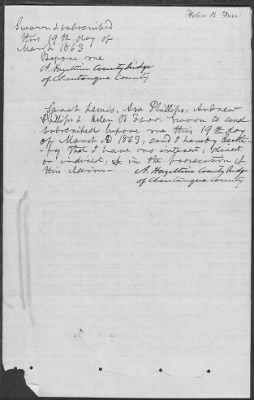 Helen B. Farr
Sworn & subscribed
this 19th day of
March 1863
Before me
A. Hazeltine County Judge
of Chautauqua County
Lewis, Asa Phillips, Andrew
Phillips & Helen B. Farr. Sworn to and
subscribed before me this 19th day
of March AD 1863, and I hereby certi-
fy that I have no interest, direct
or indirect, in the prosecution of
this claim-
A. Hazeltine County Judge
of Chautauqua County